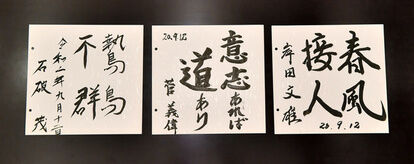 春風
接人
岸田文雄
20.9.12
20.9.12
意志あれば
道あり
菅義偉
鷙鳥
不群
令和二年九月十二日
石破茂